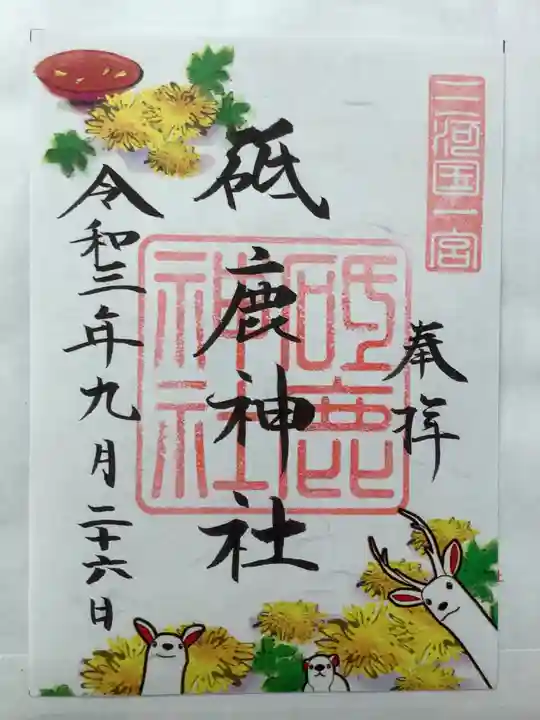 三河国一宮
奉拝
砥鹿神社
砥鹿
神社
令和三年九月二十六日